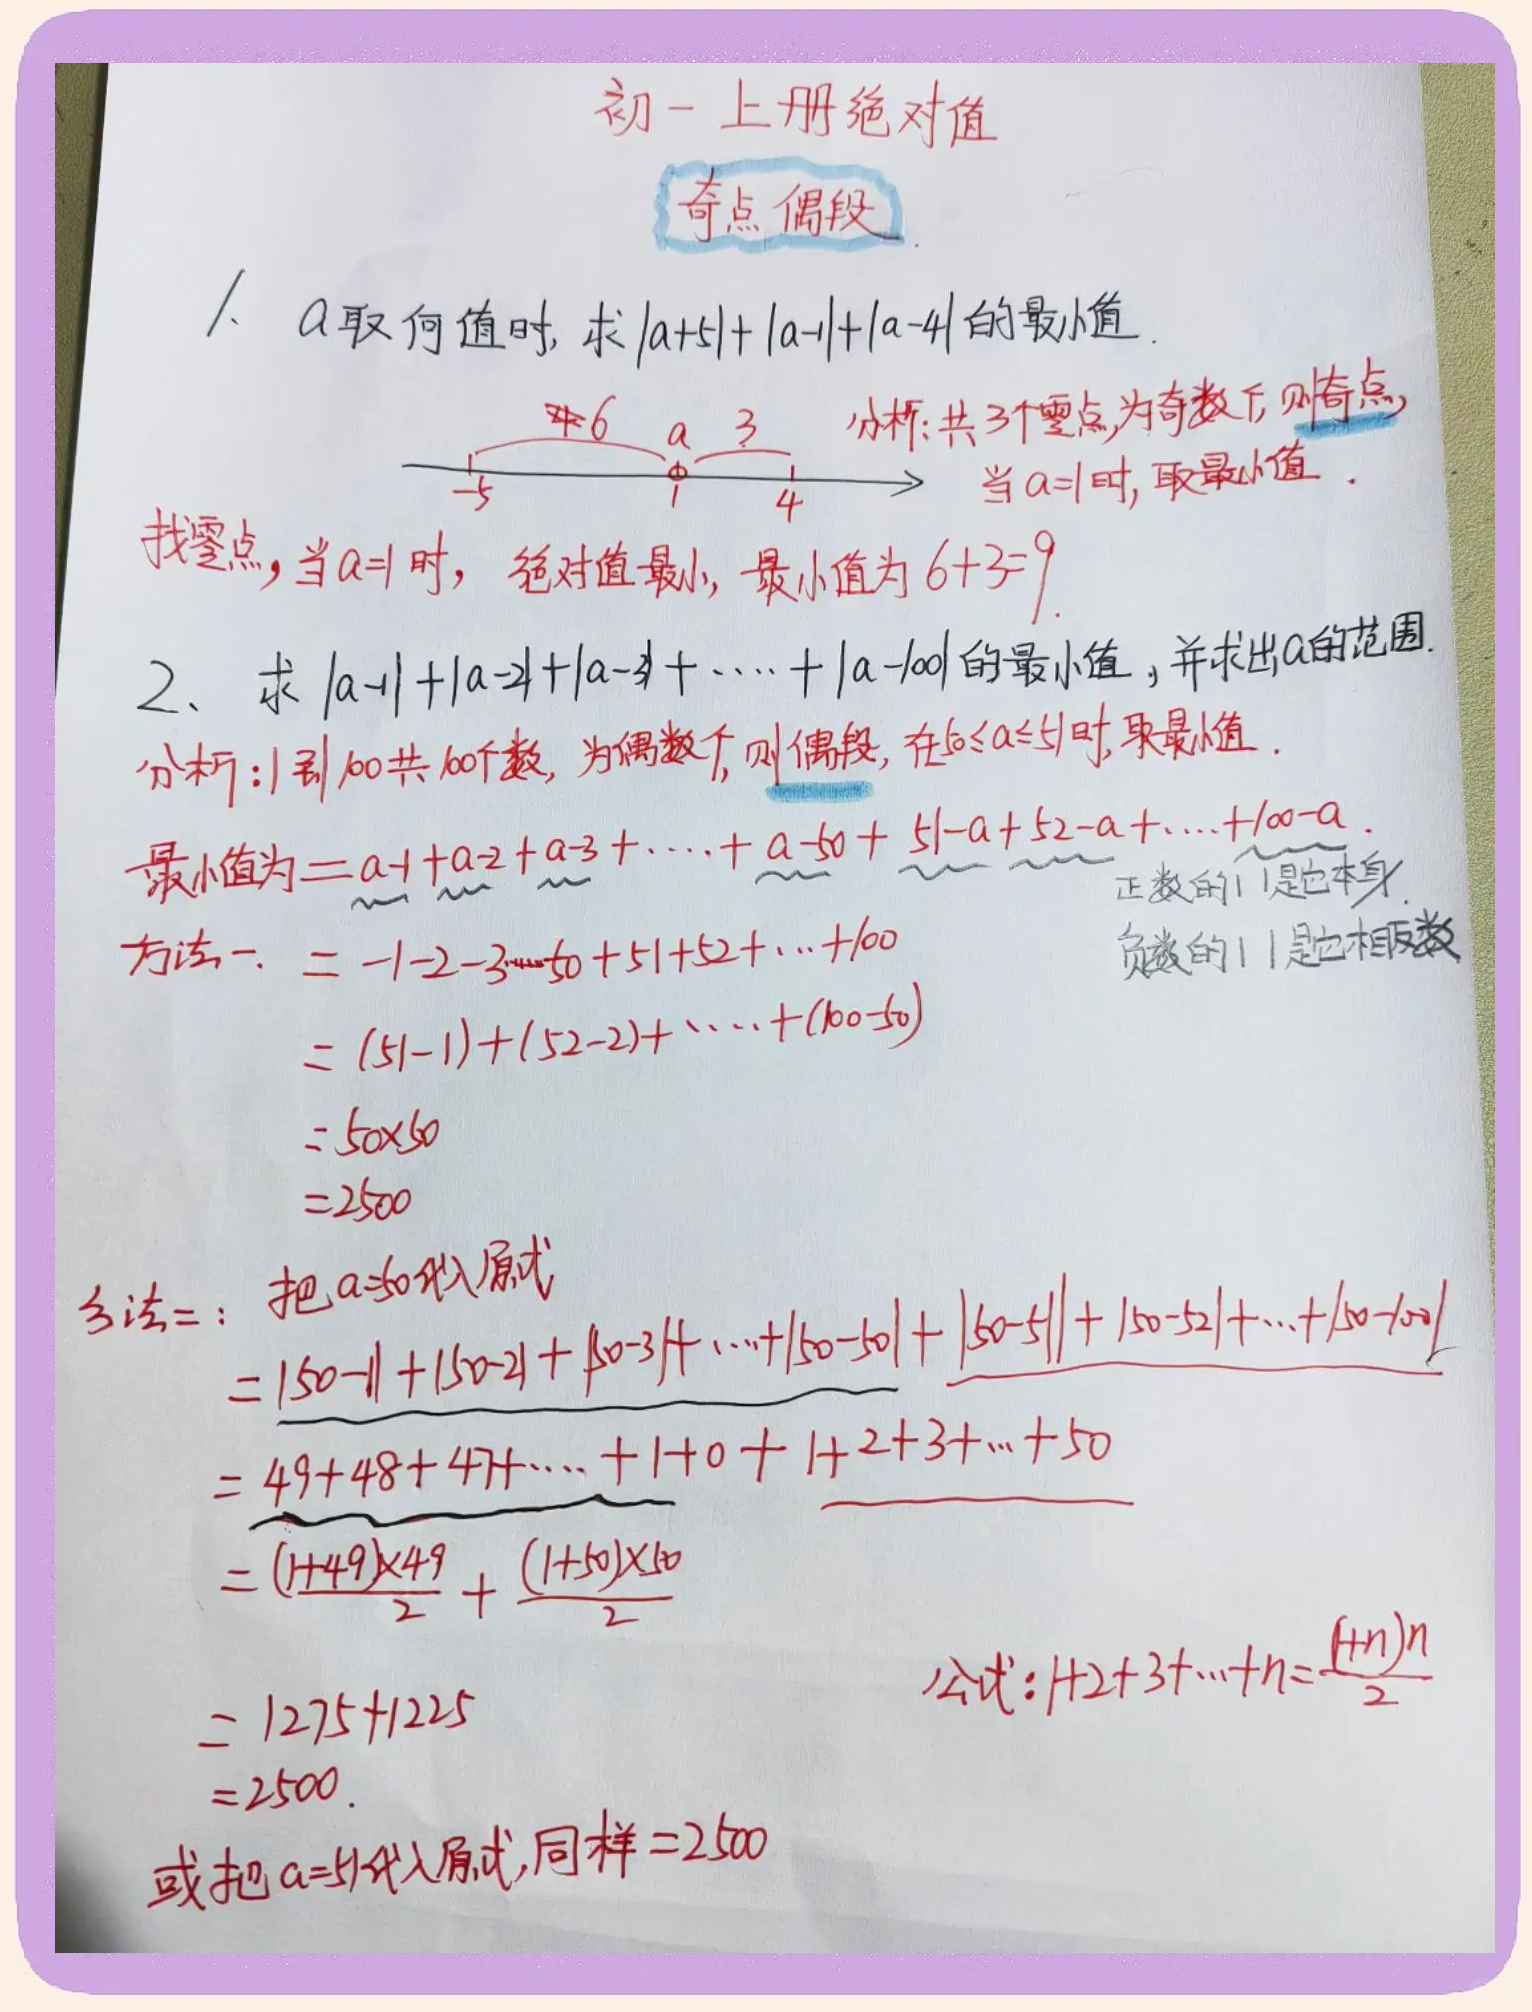 初一上册绝对值
奇点 偶段
1、a取何值时,求|a+5|+|a-1|+|a-4|的最小值.
6 a 3
-5 1 4
分析:共3个零点,为奇数个,则奇点,
当a=1时,取最小值.
找零点,当a=1时, 绝对值最小, 最小值为6+3=9.
2、求|a-1|+|a-2|+|a-3|+....+|a-100|的最小值,并求出a的范围.
分析:1到100共100个数,为偶数个,则偶段,在50≤a≤51时,取最小值.
最小值为=a-1+a-2+a-3+....+a-50+51-a+52-a+....+100-a.
正数的| |是它本身.
负数的| |是它相反数
方法一. =-1-2-3......-50+51+52+...+100
=(51-1)+(52-2)+....+(100-50)
=50×50
=2500
方法二: 把a=50代入原式
=|50-1|+|50-2|+|50-3|+....+|50-50|+|50-51|+|50-52|+...+|50-100|
=49+48+47+....+1+0+1+2+3+...+50
=(1+49)×49/2+(1+50)×50/2
公式:1+2+3+...+n=(1+n)n/2
=1275+1225
=2500.
或把a=51代入原式,同样=2500